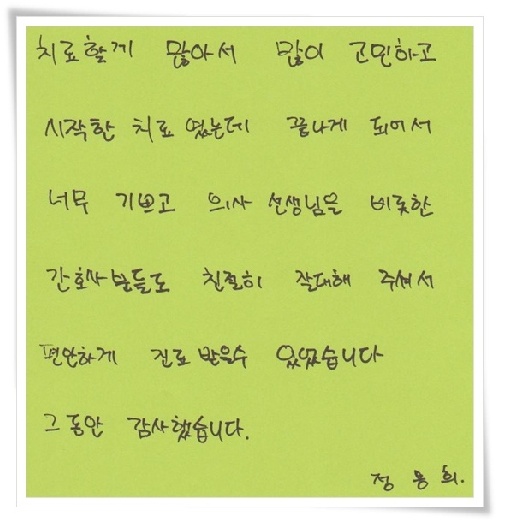 치료할게 많아서 많이 고민하고
시작한 치료 였는데 끝나게 되어서
너무 기쁘고 의사 선생님을 비롯한
간호사분들도 친절히 잘대해 주셔서
편안하게 진료 받을수 있었습니다
그동안 감사했습니다.
정용희.